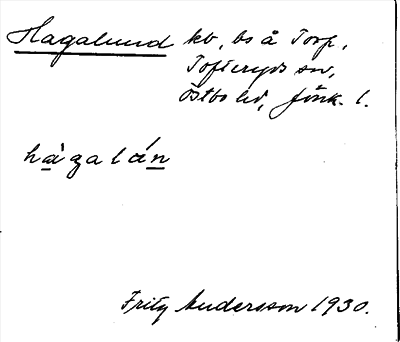 Hagalund kv, bs å Torp,
Tofteryds sn,
Östbo hd, Jönk. l.
hàgalán
Fritz Andersson 1930.